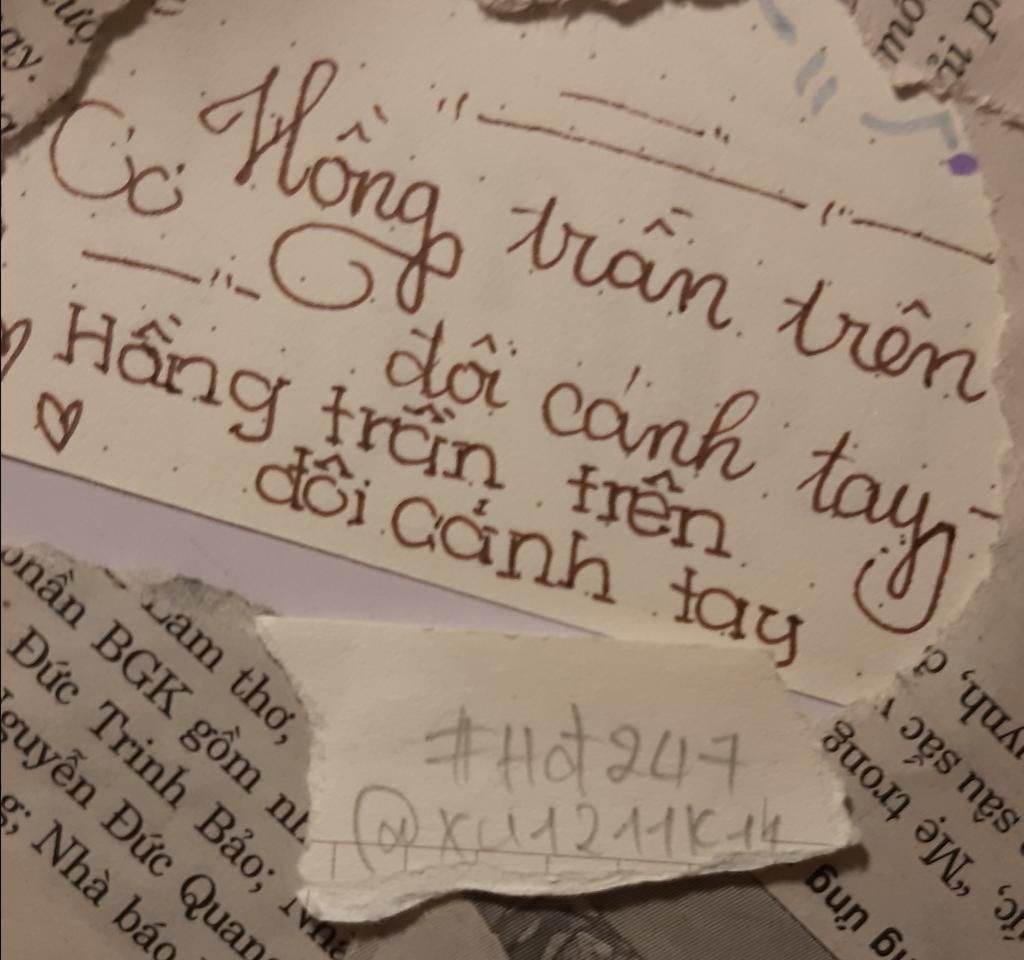 Có Hồng trần trên
đôi cánh tay
Hồng trần trên
đôi cánh tay
#Hot247
@xu1211k14
ay.
onần BGK gồm
Lam thơ,
Đức Trinh Bảo;
guyễn Đức Quang
g; Nhà báo
"Mẹ trong
sâu sắc v
ng ứng